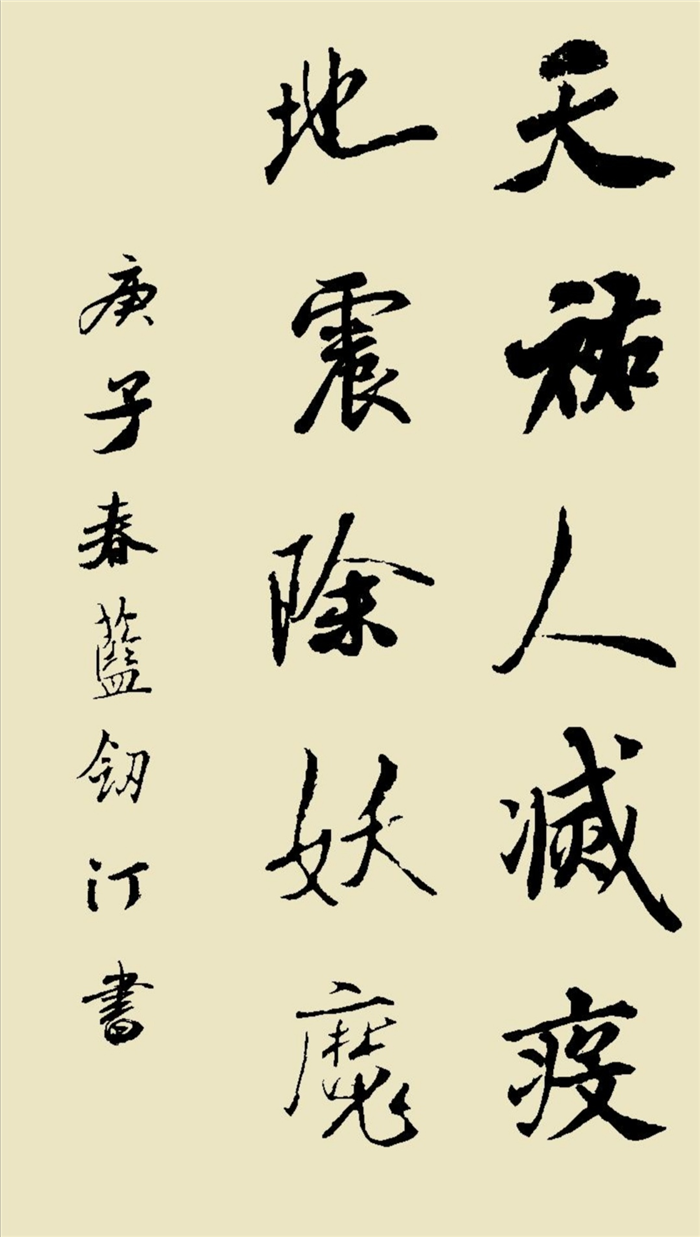 天祐人滅疫
地震除妖魔
庚子春藍釰汀書